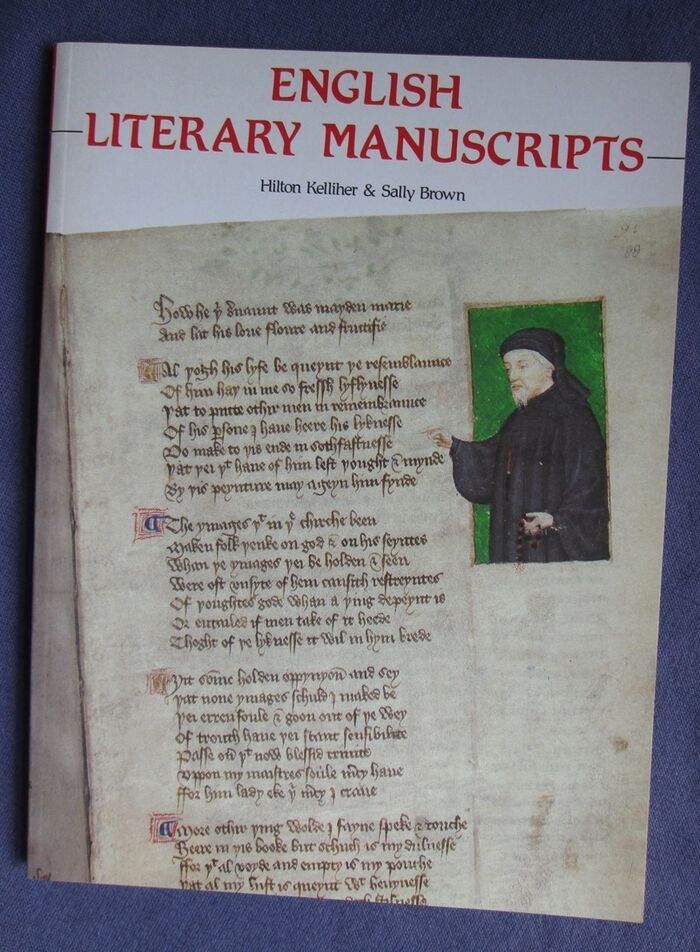 ENGLISH
LITERARY MANUSCRIPTS
Hilton Kelliher & Sally Brown
88
How he þͥ seruaunt was mayden marie
And lat his loue floure and fructifie
Al þogh his lyfe be queynt þe resemblaunce
Of him haþ in me so fressh lyflynesse
Þat to putte othir men in remembraunce
Of his ꝑsone I haue heere his lyknesse
Do make to þis ende in sothfastnesse
Þat þei þͭ haue of him left þought & mynde
By þis peynture may ageyn him fynde
The ymages þͭ in þͤ chirche been
Maken folk þenke on god & on his seyntes
Whan þe ymages þei be holden & seen
Were oft vnsyte of hem causith restreyntes
Of þoughtes gode whan a þing depeynt is
Or entailed if men take of it heede
Thoght of þe lyknesse it wil in hym brede
Ȝit some holden oppynyon and sey
Þat none ymages schuld I maked be
Þei erren foule & goon out of þe wey
Of trouth haue þei scant sensibilite
Passe ou̾ þͭ now blessid trinite
Vppon my maistres soule m̾cy haue
ffor him lady eke þͥ m̾cy I craue
More othir þing wolde I fayne speke & touche
Heere in þis booke but schuch is my dulnesse
ffor þͭ al voyde and empty is my pouche
Þat al my lust is queynt wͭ heuynesse